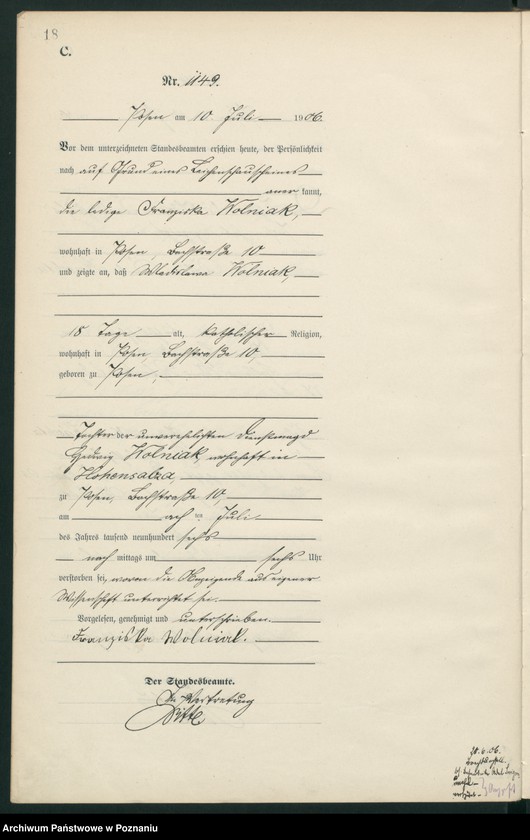 18
C.
Nr. 1149.
Posen am 10 Juli 1906.
Vor dem unterzeichneten Standesbeamten erschien heute, der Persönlichkeit
nach auf Grund eines Leichenschauscheines
anerkannt,
die ledige Franziska Wolniak,
wohnhaft in Posen, Bachstraße 10
und zeigte an, daß Wladislawa Wolniak,
18 Tage alt, katholischer Religion,
wohnhaft in Posen, Bachstraße 10,
geboren zu Posen,
Tochter der unverehelichten Dienstmagd
Hedwig Wolniak, wohnhaft in
Hohensalza,
zu Posen, Bachstraße 10,
am acht ten Juli
des Jahres tausend neunhundert sechs
nach mittags um sechs Uhr
verstorben sei, wovon die Anzeigende aus eigener
Wissenschaft unterrichtet sei.
Vorgelesen, genehmigt und unterschrieben.
Franziska Wolniak.
Der Standesbeamte.
In Vertretung
Archiwum Państwowe w Poznaniu